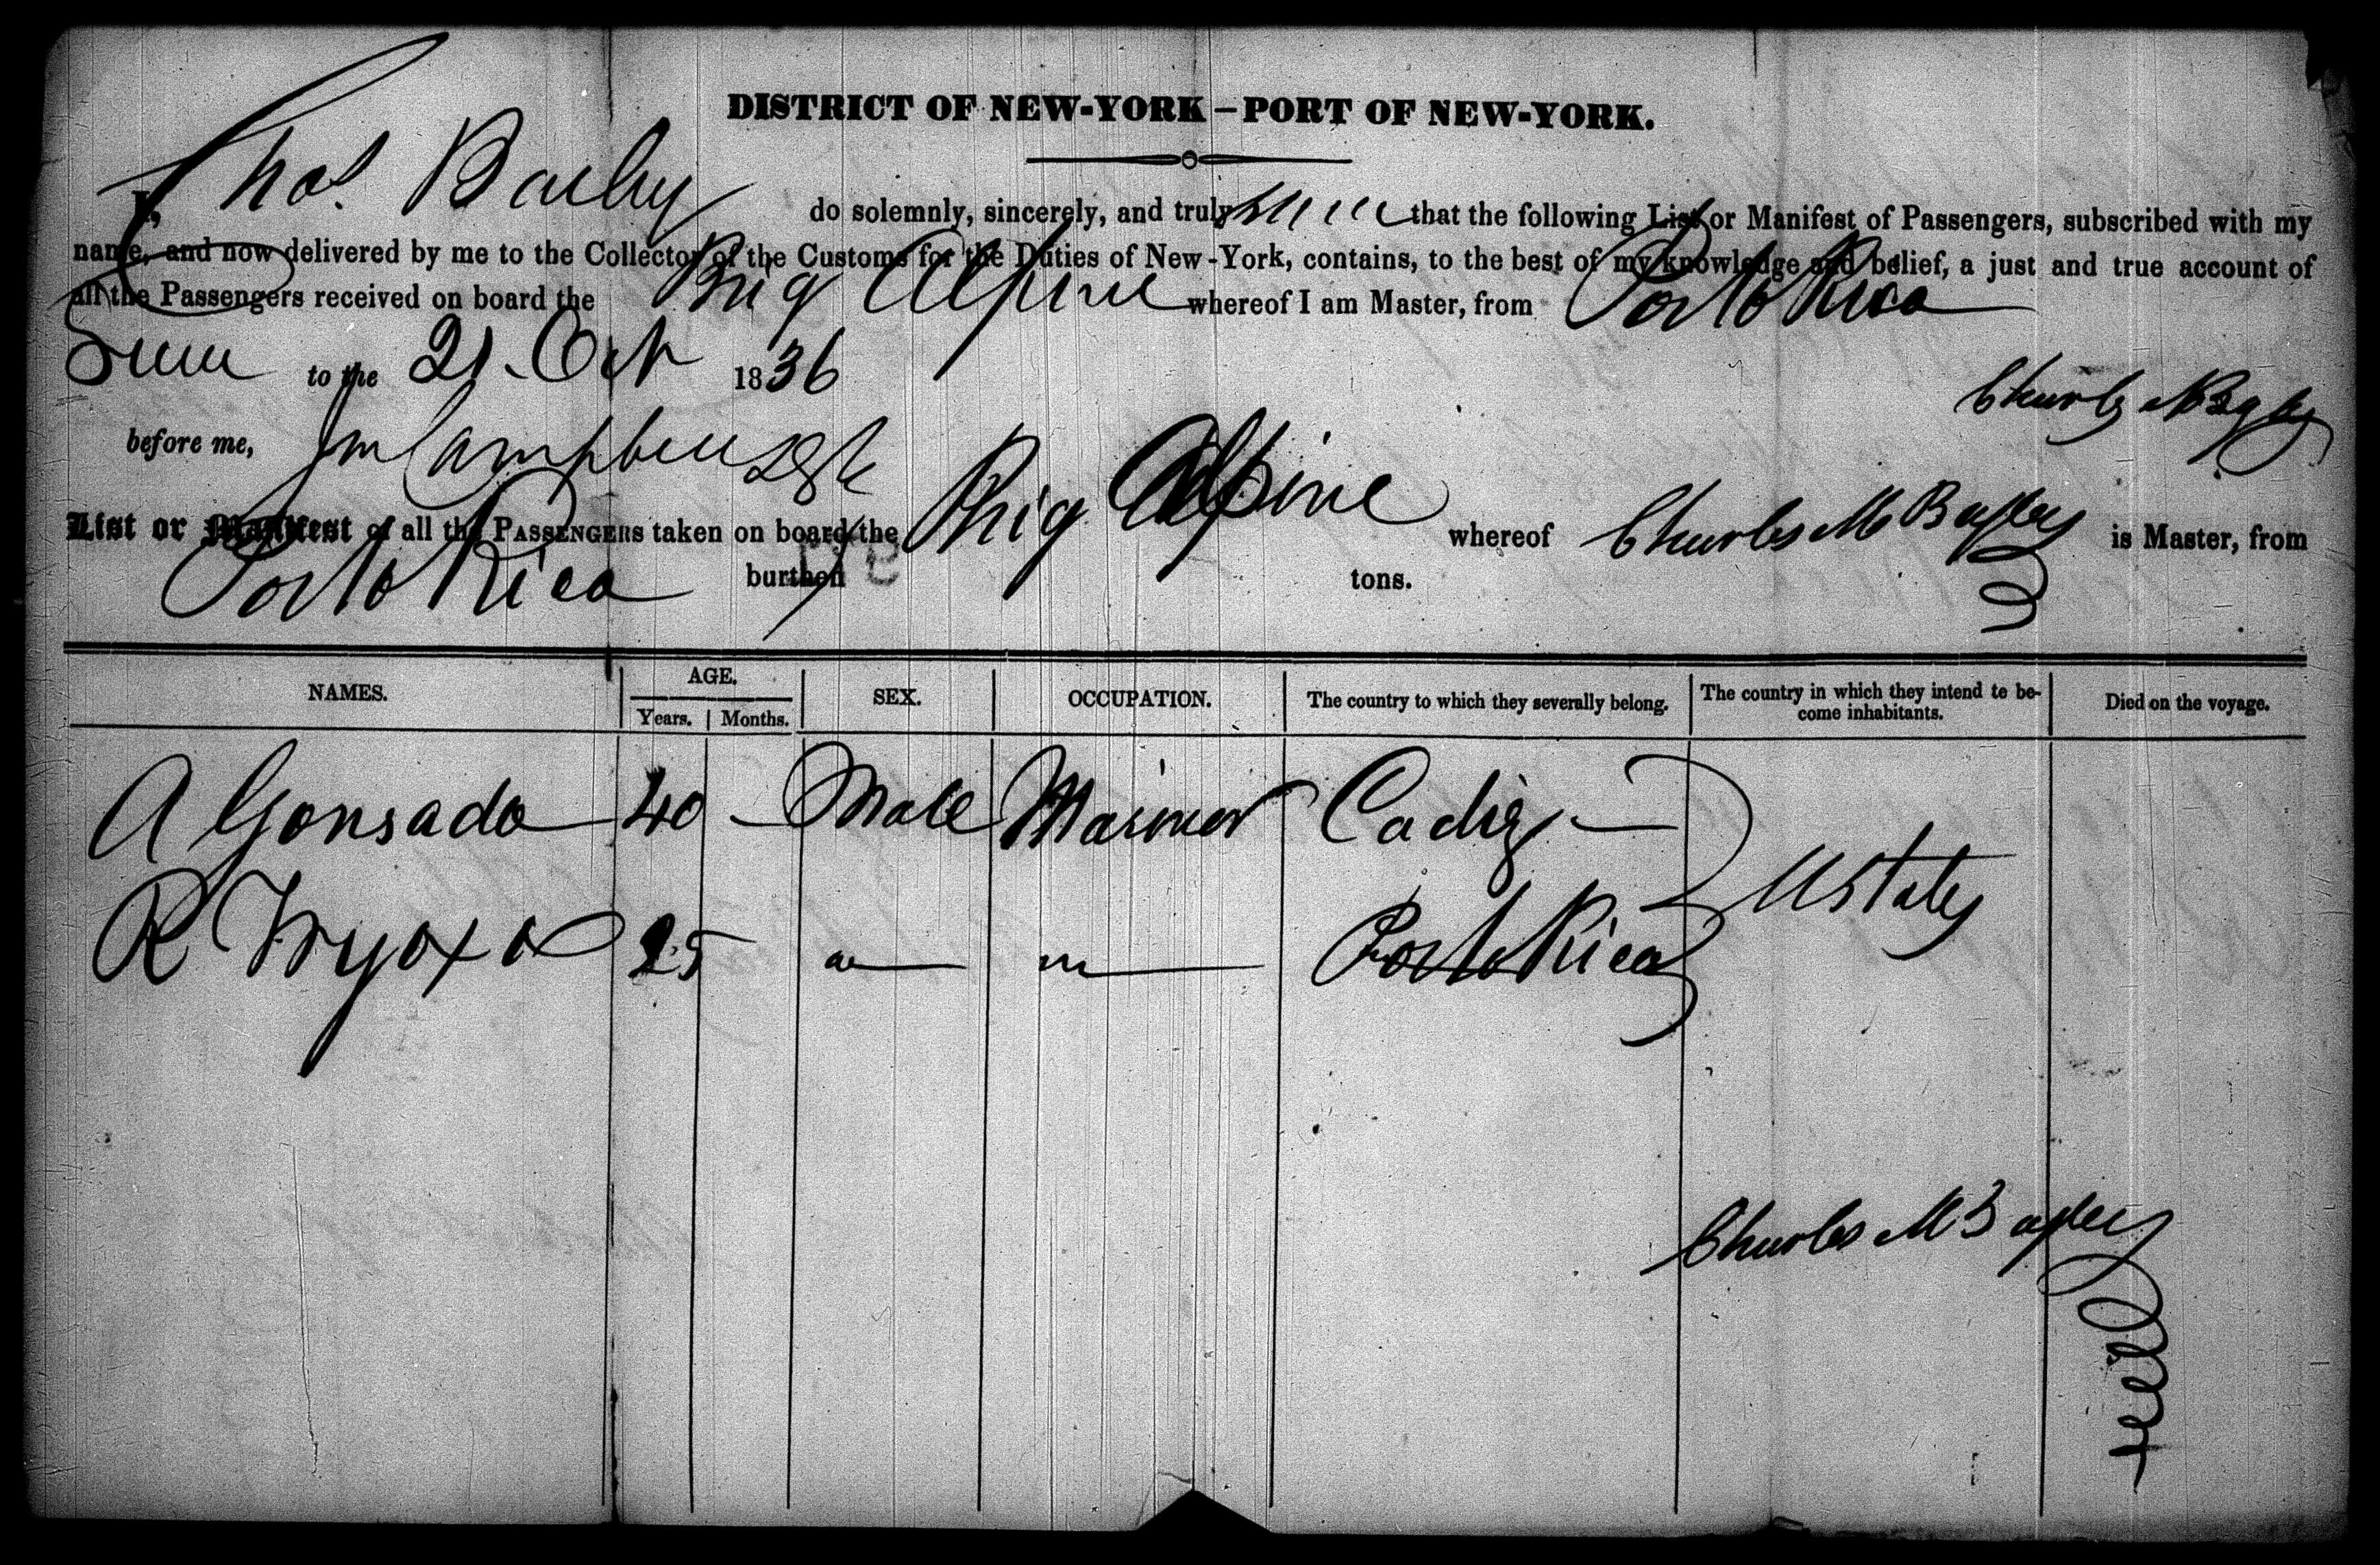 DISTRICT OF NEW-YORK – PORT OF NEW-YORK.
I, Thos. Bailey do solemnly, sincerely, and truly that the following List or Manifest of Passengers, subscribed with my
name, and now delivered by me to the Collector of the Customs for the Duties of New-York, contains, to the best of my knowledge and belief, a just and true account of
all the Passengers received on board the Brig Alpine whereof I am Master, from Porto Rico
to the 21. Oct 1836
Charles M Bagley
before me, Campbell
List or Manifest of all the PASSENGERS taken on board the Brig Alpine whereof Charles M Bagley is Master, from
Porto Rico burthen tons.
NAMES. AGE. Years. Months. SEX. OCCUPATION. The country to which they severally belong. The country in which they intend to be-
come inhabitants. Died on the voyage.
A Gonsado 40 Male Mariner Cadiz
U States
R 25 Porto Rico
Charles M Bagley